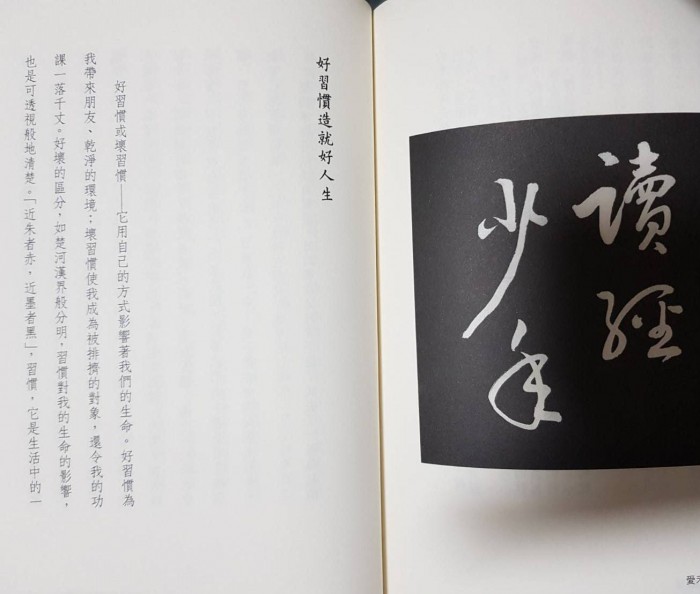 讀經
少年
愛
好習慣造就好人生
好習慣或壞習慣——它用自己的方式影響著我們的生命。好習慣為
我帶來朋友、乾淨的環境;壞習慣使我成為被排擠的對象,還令我的功
課一落千丈。好壞的區分,如楚河漢界般分明,習慣對我的生命的影響,
也是可透視般地清楚。「近朱者赤,近墨者黑」,習慣,它是生活中的一